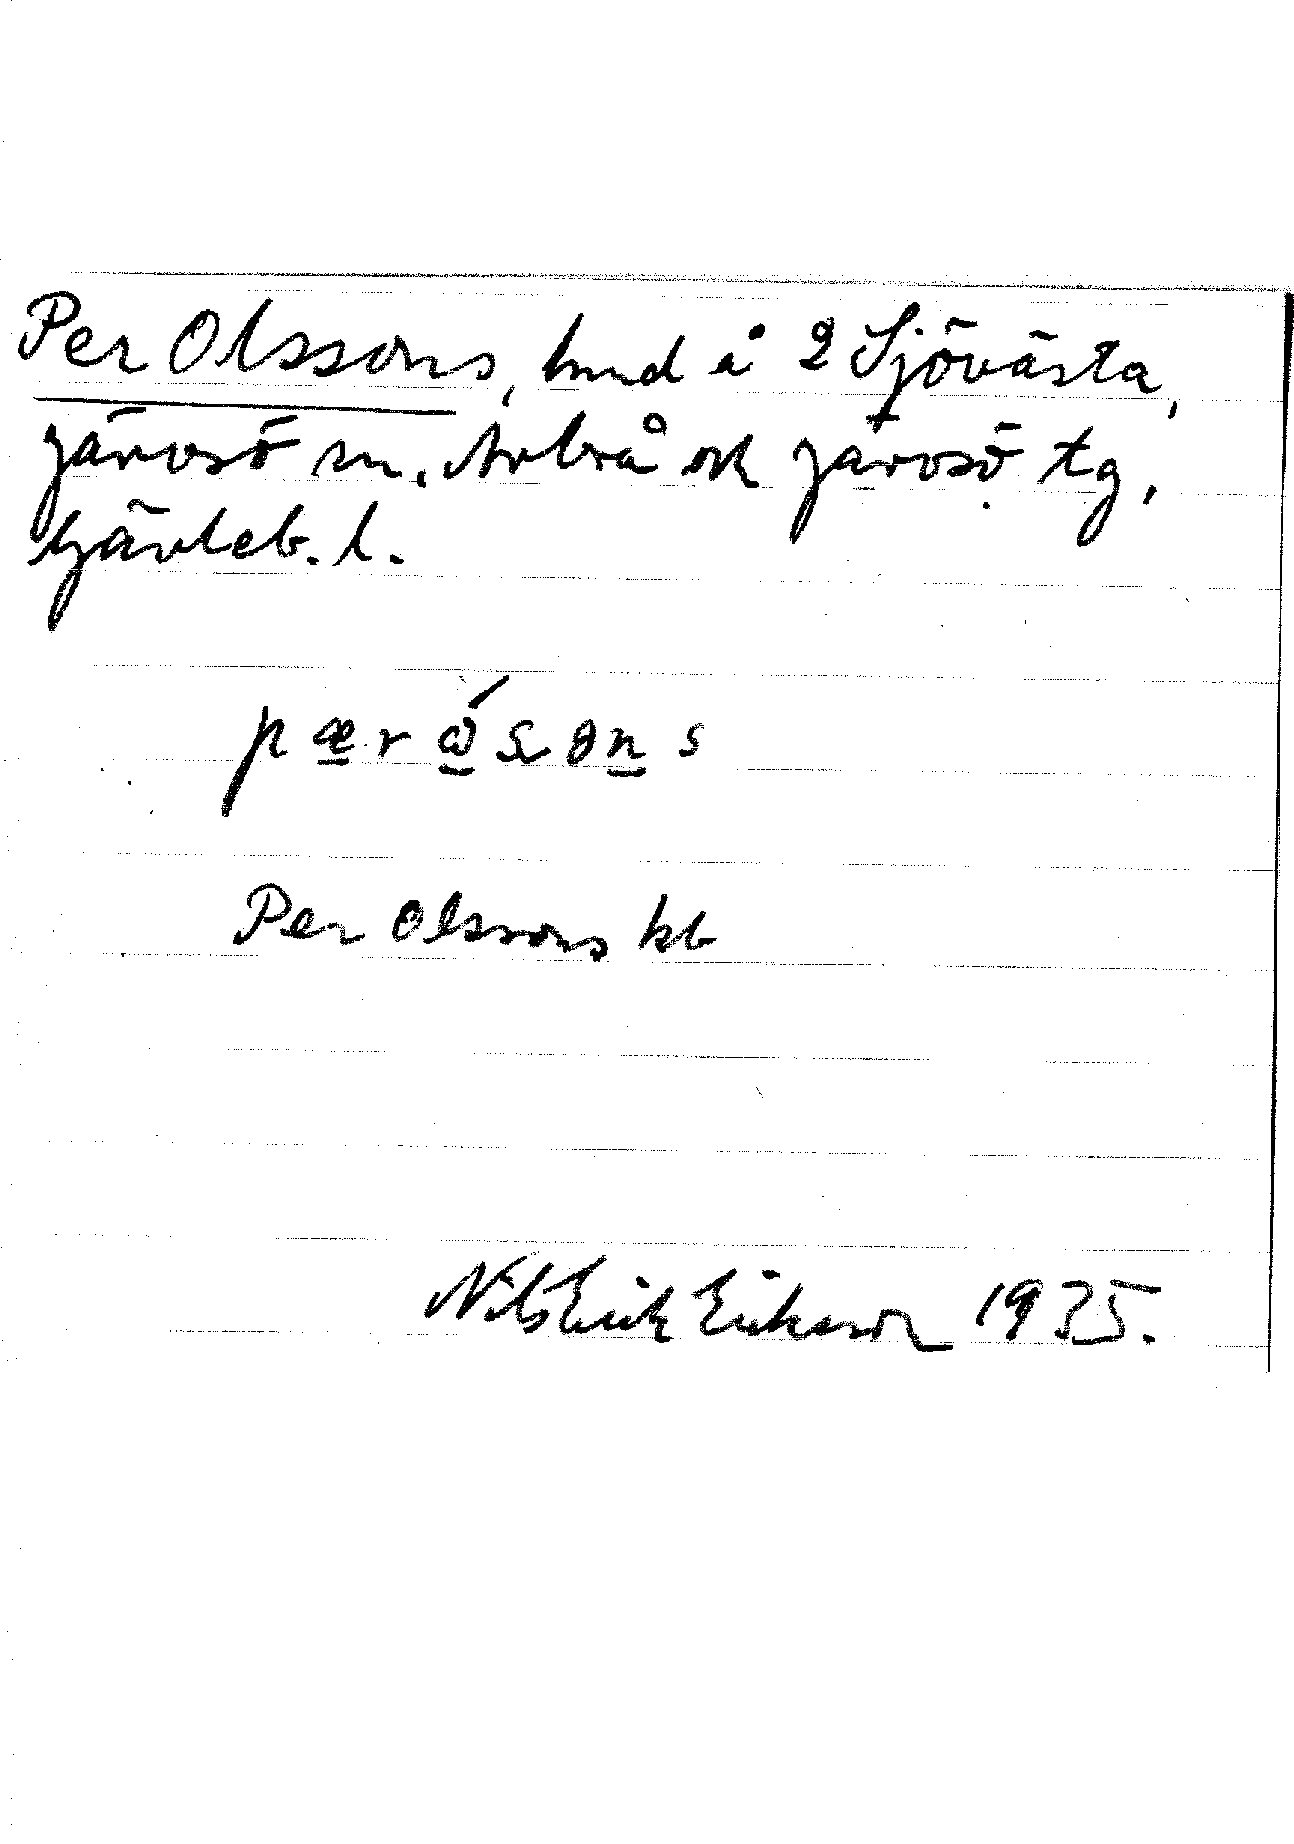 Per Olssons, hmd å 2 Sjövästa,
Järvsö sn, Arbrå ock Järvsö tg,
Gävleb. l.
Per Olssons kb
Nils Erik Eriksson 1935.